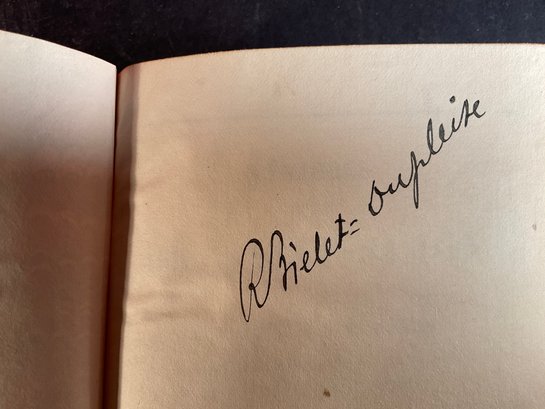 R Bielet= Dupleite